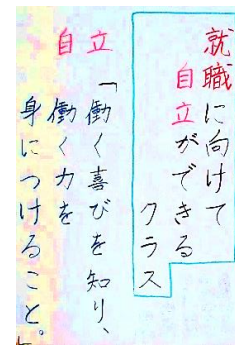 就職に向けて
自立ができる
クラス
自立
「働く喜びを知り、
働く力を
身につけること。